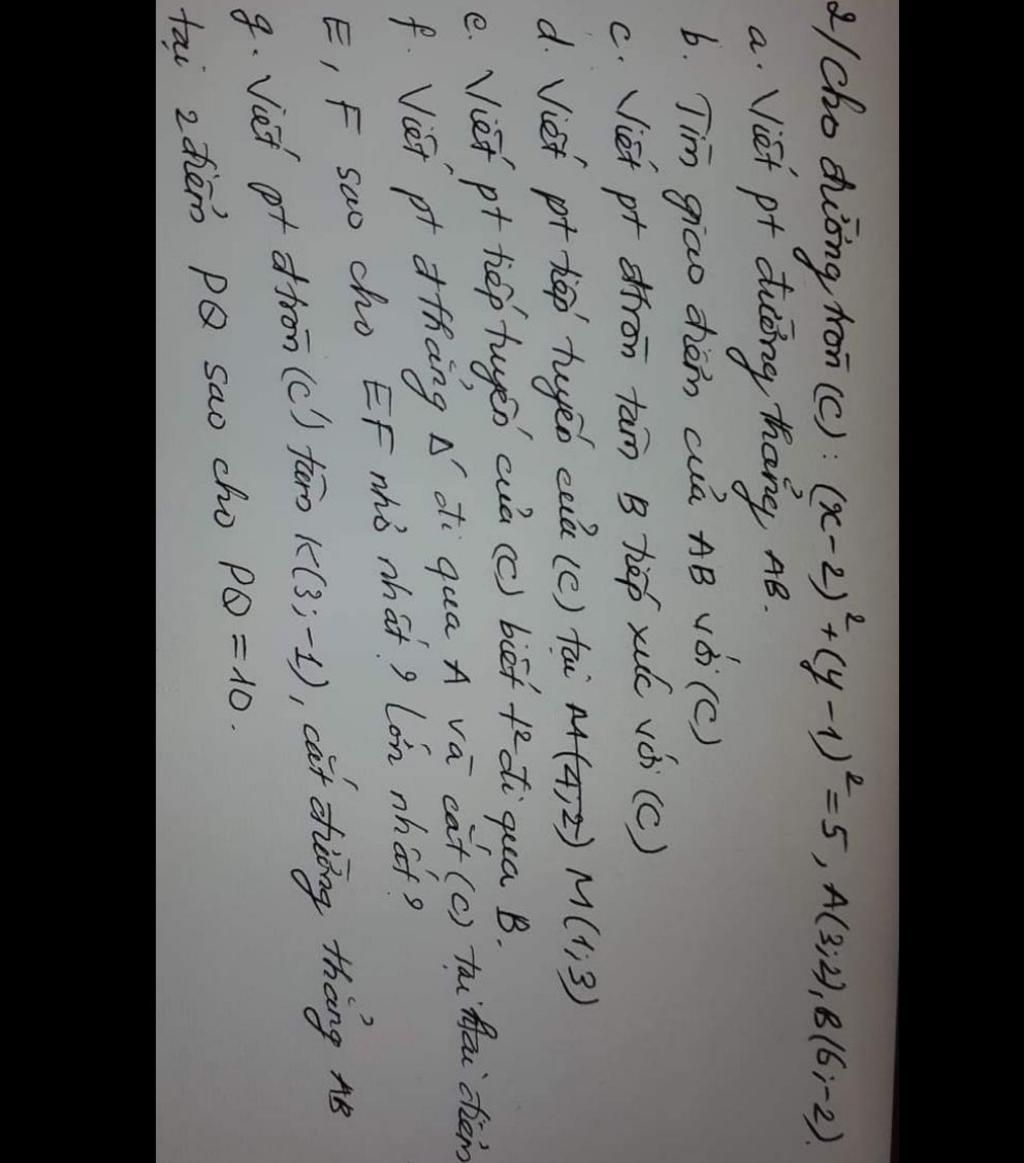 2/ Cho đường tròn (C): (x-2)² + (y-1)² = 5, A(3;2), B(6;-2).
a. Viết pt đường thẳng AB.
b. Tìm giao điểm của AB với (C)
c. Viết pt đtròn tâm B tiếp xúc với (C)
d. Viết pt tiếp tuyến của (C) tại M(1;3)
e. Viết pt tiếp tuyến của (C) biết t² đi qua B.
f. Viết pt đthẳng Δ đi qua A và cắt (C) tại hai điểm
E, F sao cho EF nhỏ nhất? Lớn nhất?
g. Viết pt đtròn (C') tâm K(3;-1), cắt đường thẳng AB
tại 2 điểm PQ sao cho PQ = 10.